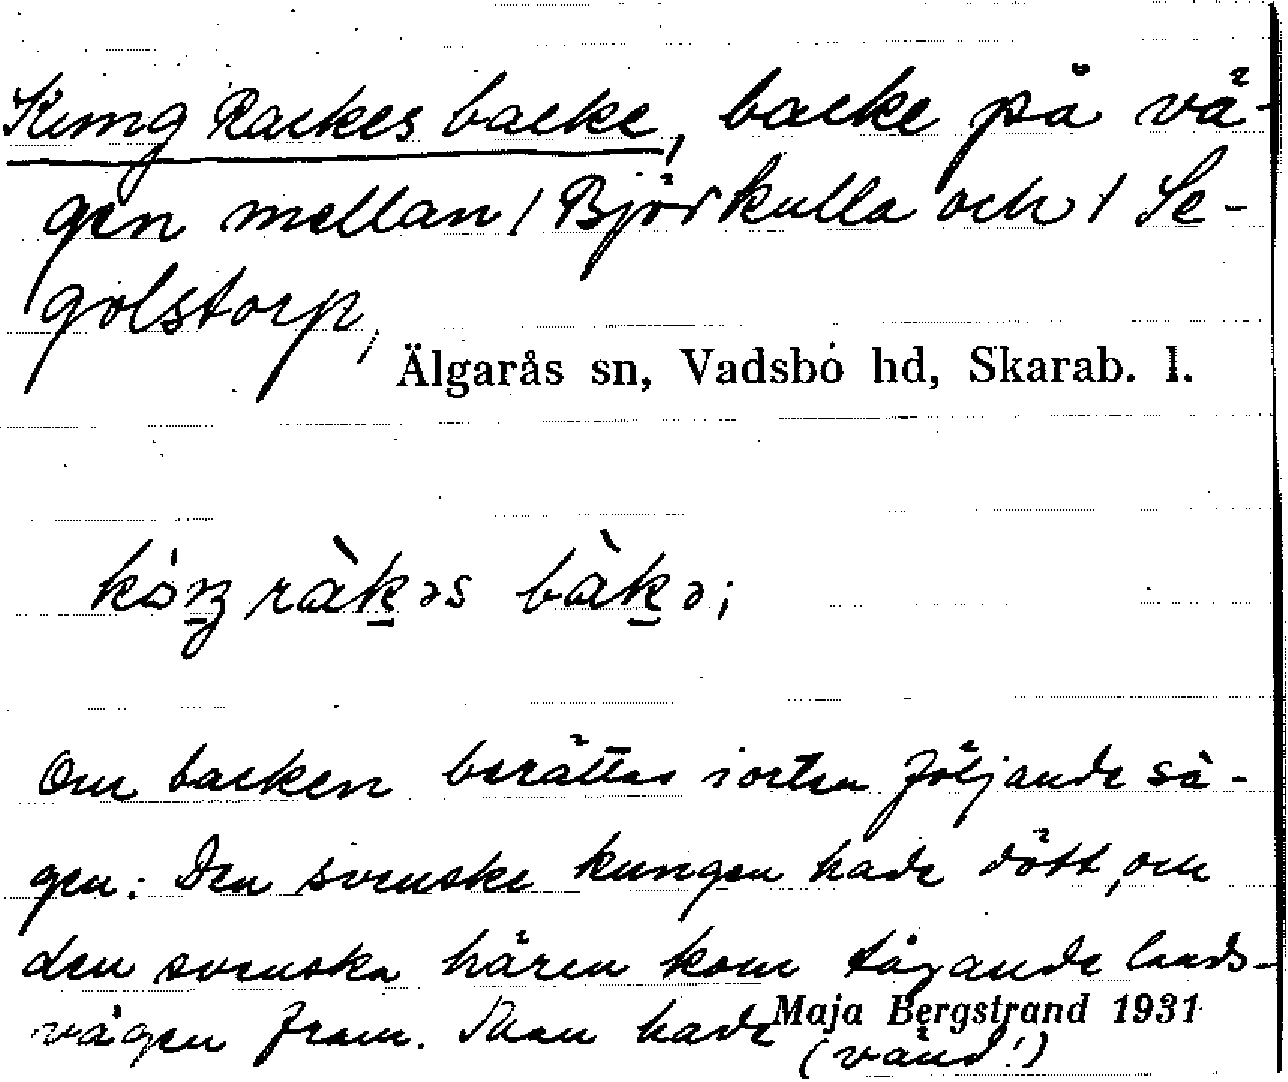 Kung Rackes backe, backe på vä-
gen mellan / Björkulla och / Se-
golstorp,
Älgarås sn, Vadsbo hd, Skarab. l.
kòŋ ràk̠əs bàk̠ə;
Om backen berättas i orten följande sä-
gen: Den svenske kungen hade dött, och
den svenska hären kom tågande lands-
vägen fram. Man hade
Maja Bergstrand 1931
(vänd!)